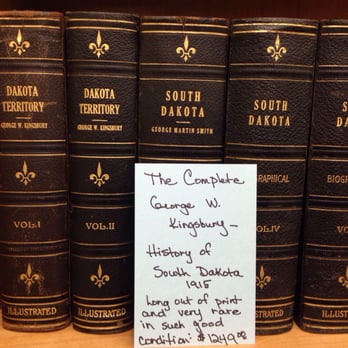 DAKOTA
TERRITORY
GEORGE W. KINGSBURY
VOL. I
ILLUSTRATED
DAKOTA
TERRITORY
GEORGE W. KINGSBURY
VOL. II
ILLUSTRATED
SOUTH
DAKOTA
GEORGE MARTIN SMITH
SOUTH
DAKOTA
GRAPHICAL
VOL. IV
ILLUSTRATED
SOUTH
DAKOTA
BIOG
ILLUS
The Complete
George W.
Kingsbury—
History of
South Dakota
1915
Long out of print
and very rare
in such good
condition: $1249.00